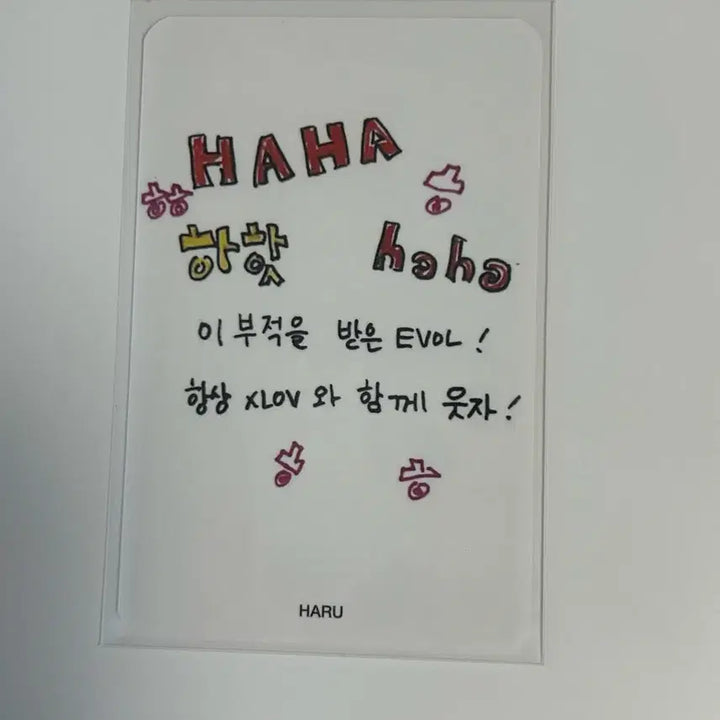 HAHA
ㅎㅎ ㅎ
하핫 haha
이 부적을 받은 EVOL !
항상 XLOV 와 함께 웃자 !
ㅎ ㅎ
HARU